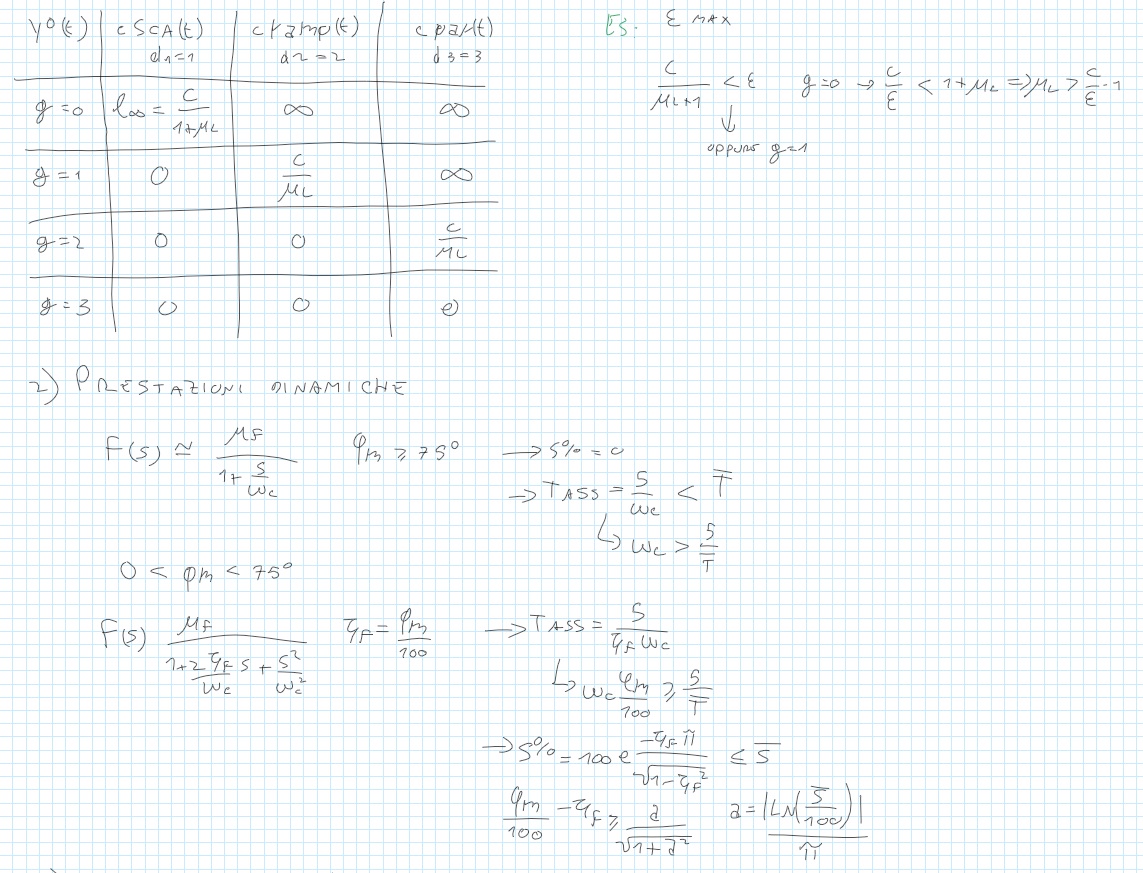 y⁰(t) | c sca(t) d1=1 | c ramp(t) d2=2 | c par(t) d3=3
g=0 | l∞ = c/(1+μL) | ∞ | ∞
g=1 | 0 | c/μL | ∞
g=2 | 0 | 0 | c/μL
g=3 | 0 | 0 | 0
ES. ε MAX
c/(μL+1) < ε   g=0 → c/ε < 1+μL => μL > c/ε - 1
↓
oppure g=1
2) PRESTAZIONI DINAMICHE
F(s) ≅ μF/(1+s/ωc)   φm ≥ 75°   → S% = 0
→ TASS = 5/ωc < T̅
↳ ωc > 5/T̅
0 < φm < 75°
F(s) μF/(1+2ξF s/ωc + s²/ωc²)   ξF = φm/100   → TASS = 5/(ξF ωc)
↳ ωc φm/100 ≥ 5/T̅
→ S% = 100 e^(-ξF π/√(1-ξF²)) ≤ S̅
φm/100 - ξF ≥ a/√(1+a²)   a = |LN(S̅/100)|/π